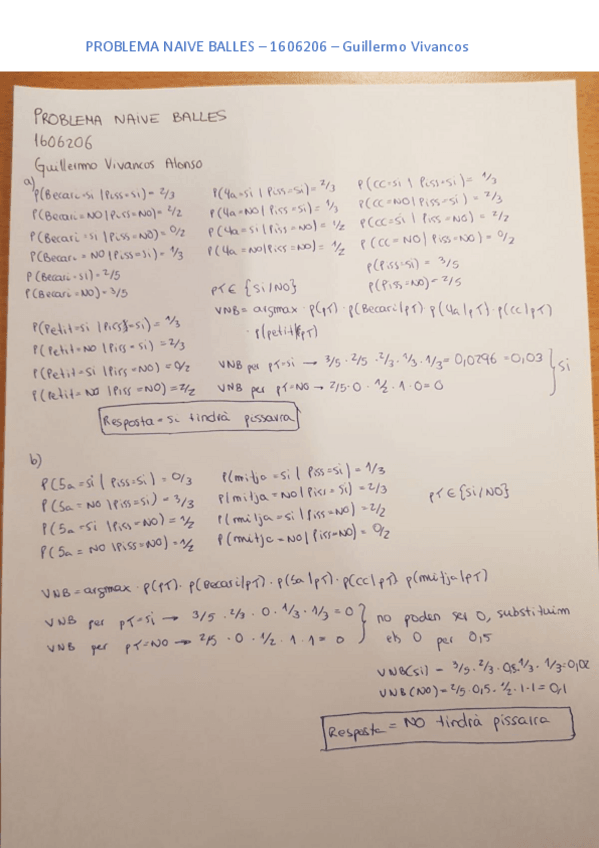 PROBLEMA NAIVE BALLES – 1606206 – Guillermo Vivancos
PROBLEMA NAIVE BALLES
1606206
Guillermo Vivancos Alonso
a)
P(Becari=si | Piss=si) = 2/3
P(Becari=NO | Piss=NO) = 2/2
P(Becari=si | Piss=NO) = 0/2
P(Becari=NO | Piss=si) = 1/3
P(Becari=si) = 2/5
P(Becari=NO) = 3/5
P(4a=si | Piss=si) = 2/3
P(4a=NO | Piss=si) = 1/3
P(4a=si | Piss=NO) = 1/2
P(4a=NO | Piss=NO) = 1/2
P(CC=si | Piss=si) = 1/3
P(CC=NO | Piss=si) = 2/3
P(CC=si | Piss=NO) = 2/2
P(CC=NO | Piss=NO) = 0/2
P(Piss=si) = 3/5
P(Piss=NO) = 2/5
PT ∈ {si/NO}
VNB = argmax · P(PT) · P(Becari|PT) · P(4a|PT) · P(CC|PT)
· P(petit|PT)
P(Petit=si | Piss=si) = 1/3
P(Petit=NO | Piss=si) = 2/3
P(Petit=si | Piss=NO) = 0/2
P(Petit=NO | Piss=NO) = 2/2
VNB per PT=si → 3/5 · 2/5 · 2/3 · 1/3 · 1/3 = 0,0296 = 0,03
VNB per PT=NO → 2/5 · 0 · 1/2 · 1 · 0 = 0
si
Resposta = si tindrà pissarra
b)
P(5a=si | Piss=si) = 0/3
P(5a=NO | Piss=si) = 3/3
P(5a=si | Piss=NO) = 1/2
P(5a=NO | Piss=NO) = 1/2
P(mitja=si | Piss=si) = 1/3
P(mitja=NO | Piss=si) = 2/3
P(mitja=si | Piss=NO) = 2/2
P(mitja=NO | Piss=NO) = 0/2
PT ∈ {si/NO}
VNB = argmax · P(PT) · P(Becari|PT) · P(5a|PT) · P(CC|PT) · P(mitja|PT)
VNB per PT=si → 3/5 · 2/3 · 0 · 1/3 · 1/3 = 0
VNB per PT=NO → 2/5 · 0 · 1/2 · 1 · 1 = 0
no poden ser 0, substituim
els 0 per 0,5
VNB(si) = 3/5 · 2/3 · 0,5 · 1/3 · 1/3 = 0,02
VNB(NO) = 2/5 · 0,5 · 1/2 · 1 · 1 = 0,1
Resposta = NO tindrà pissarra